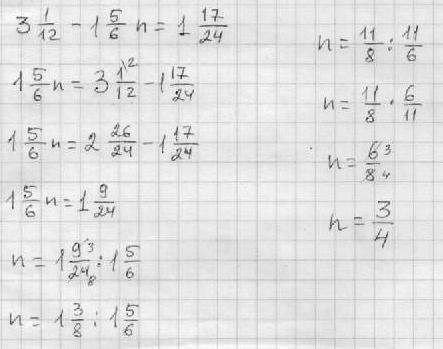 3 1/12 - 1 5/6 n = 1 17/24
1 5/6 n = 3 1/12 ² - 1 17/24
1 5/6 n = 2 26/24 - 1 17/24
1 5/6 n = 1 9/24
n = 1 9³/24₈ : 1 5/6
n = 1 3/8 : 1 5/6
n = 11/8 : 11/6
n = 11/8 · 6/11
n = 6³/8₄
n = 3/4